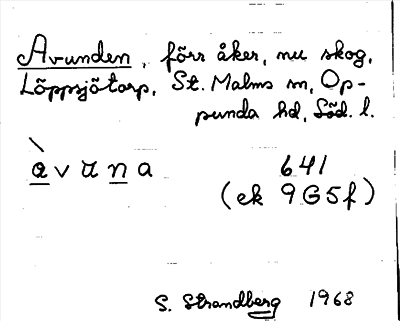 Avunden, förr åker, nu skog,
Löppsjötorp, St. Malms sn, Op-
punda hd, Söd. l.
àvuna 641
(ek 9G5f)
S. Strandberg 1968